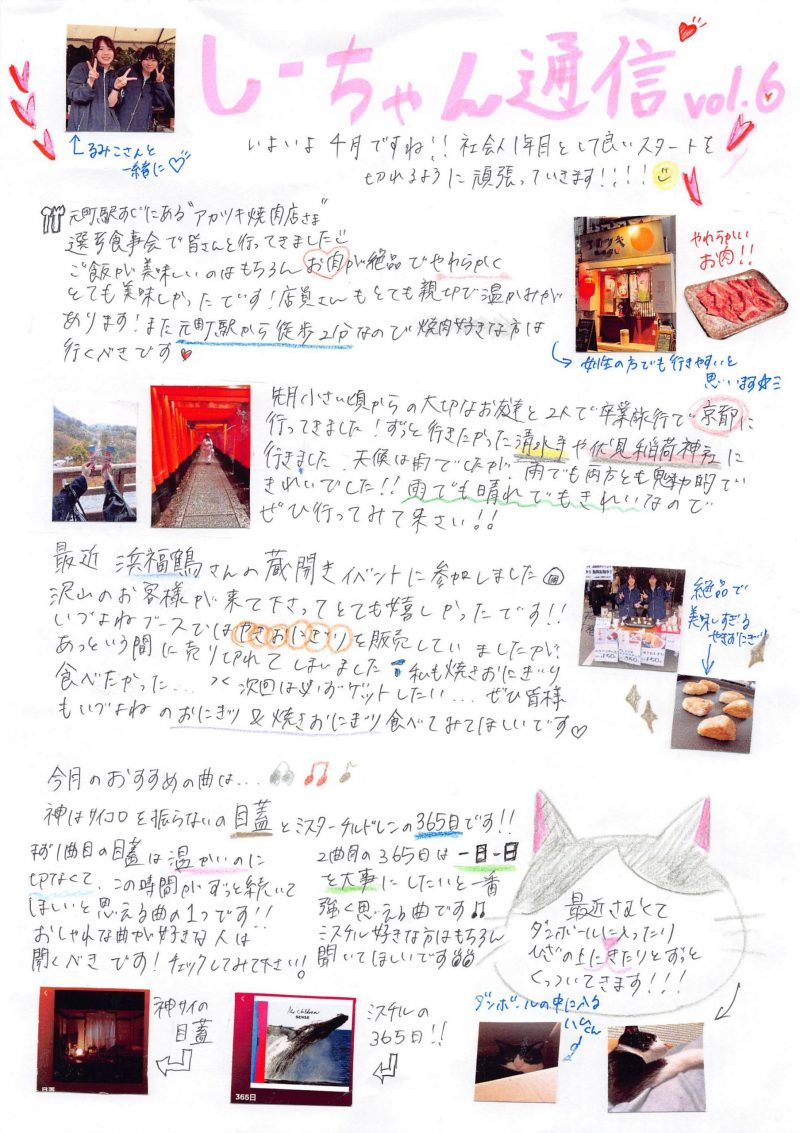 しーちゃん通信 vol.6
るみこさんと
一緒に♡
いよいよ4月ですね!!社会人1年目として良いスタートを
切れるように頑張っていきます!!!!
元町駅すぐにある"アカツキ焼肉店さま"
選考食事会で皆さんと行ってきました
ご飯が美味しいのはもちろんお肉が絶品でやわらかく
とても美味しかったです!店員さんもとても親切で温かみが
あります!また元町駅から徒歩2分なので焼肉好きな方は
行くべきです
アカツキ
やわらかい
お肉!!
女性の方でも行きやすいと
思います☆ミ
先月小さい頃からの大切なお友達と2人で卒業旅行で京都に
行ってきました!ずっと行きたかった清水寺や伏見稲荷神社に
行きました。天候は雨でしたが、雨でも両方とも魅力的で
きれいでした!!雨でも晴れでもきれいなので
ぜひ行ってみて下さい!!
最近 浜福鶴さんの蔵開きイベントに参加しました
沢山のお客様が来て下さってとても嬉しかったです!!
いづよねブースではやきおにぎりを販売していましたが、
あっという間に売り切れてしまいました 私も焼きおにぎり
食べたかった... 次回は必ずゲットしたい... ぜひ皆様
もいづよねのおにぎり&焼きおにぎり食べてみてほしいです♡
絶品で
美味しすぎる
やきおにぎり
今月のおすすめの曲は...
神はサイコロを振らないの目蓋とミスターチルドレンの365日です!!
まず1曲目の目蓋は温かいのに
切なくて、この時間がずっと続いて
ほしいと思える曲の1つです!!
おしゃれな曲が好きな人は
聞くべきです!チェックしてみて下さい!
2曲目の365日は一日一日
を大事にしたいと一番
強く思える曲です♫
ミスチル好きな方はもちろん
聞いてほしいです
最近さむくて
ダンボールに入ったり
ひざの上にきたりとずっと
くっついてきます!!!
神サイの
目蓋
目蓋
Mr.Children
SENSE
365日
ミスチルの
365日!!
ダンボールの中に入る